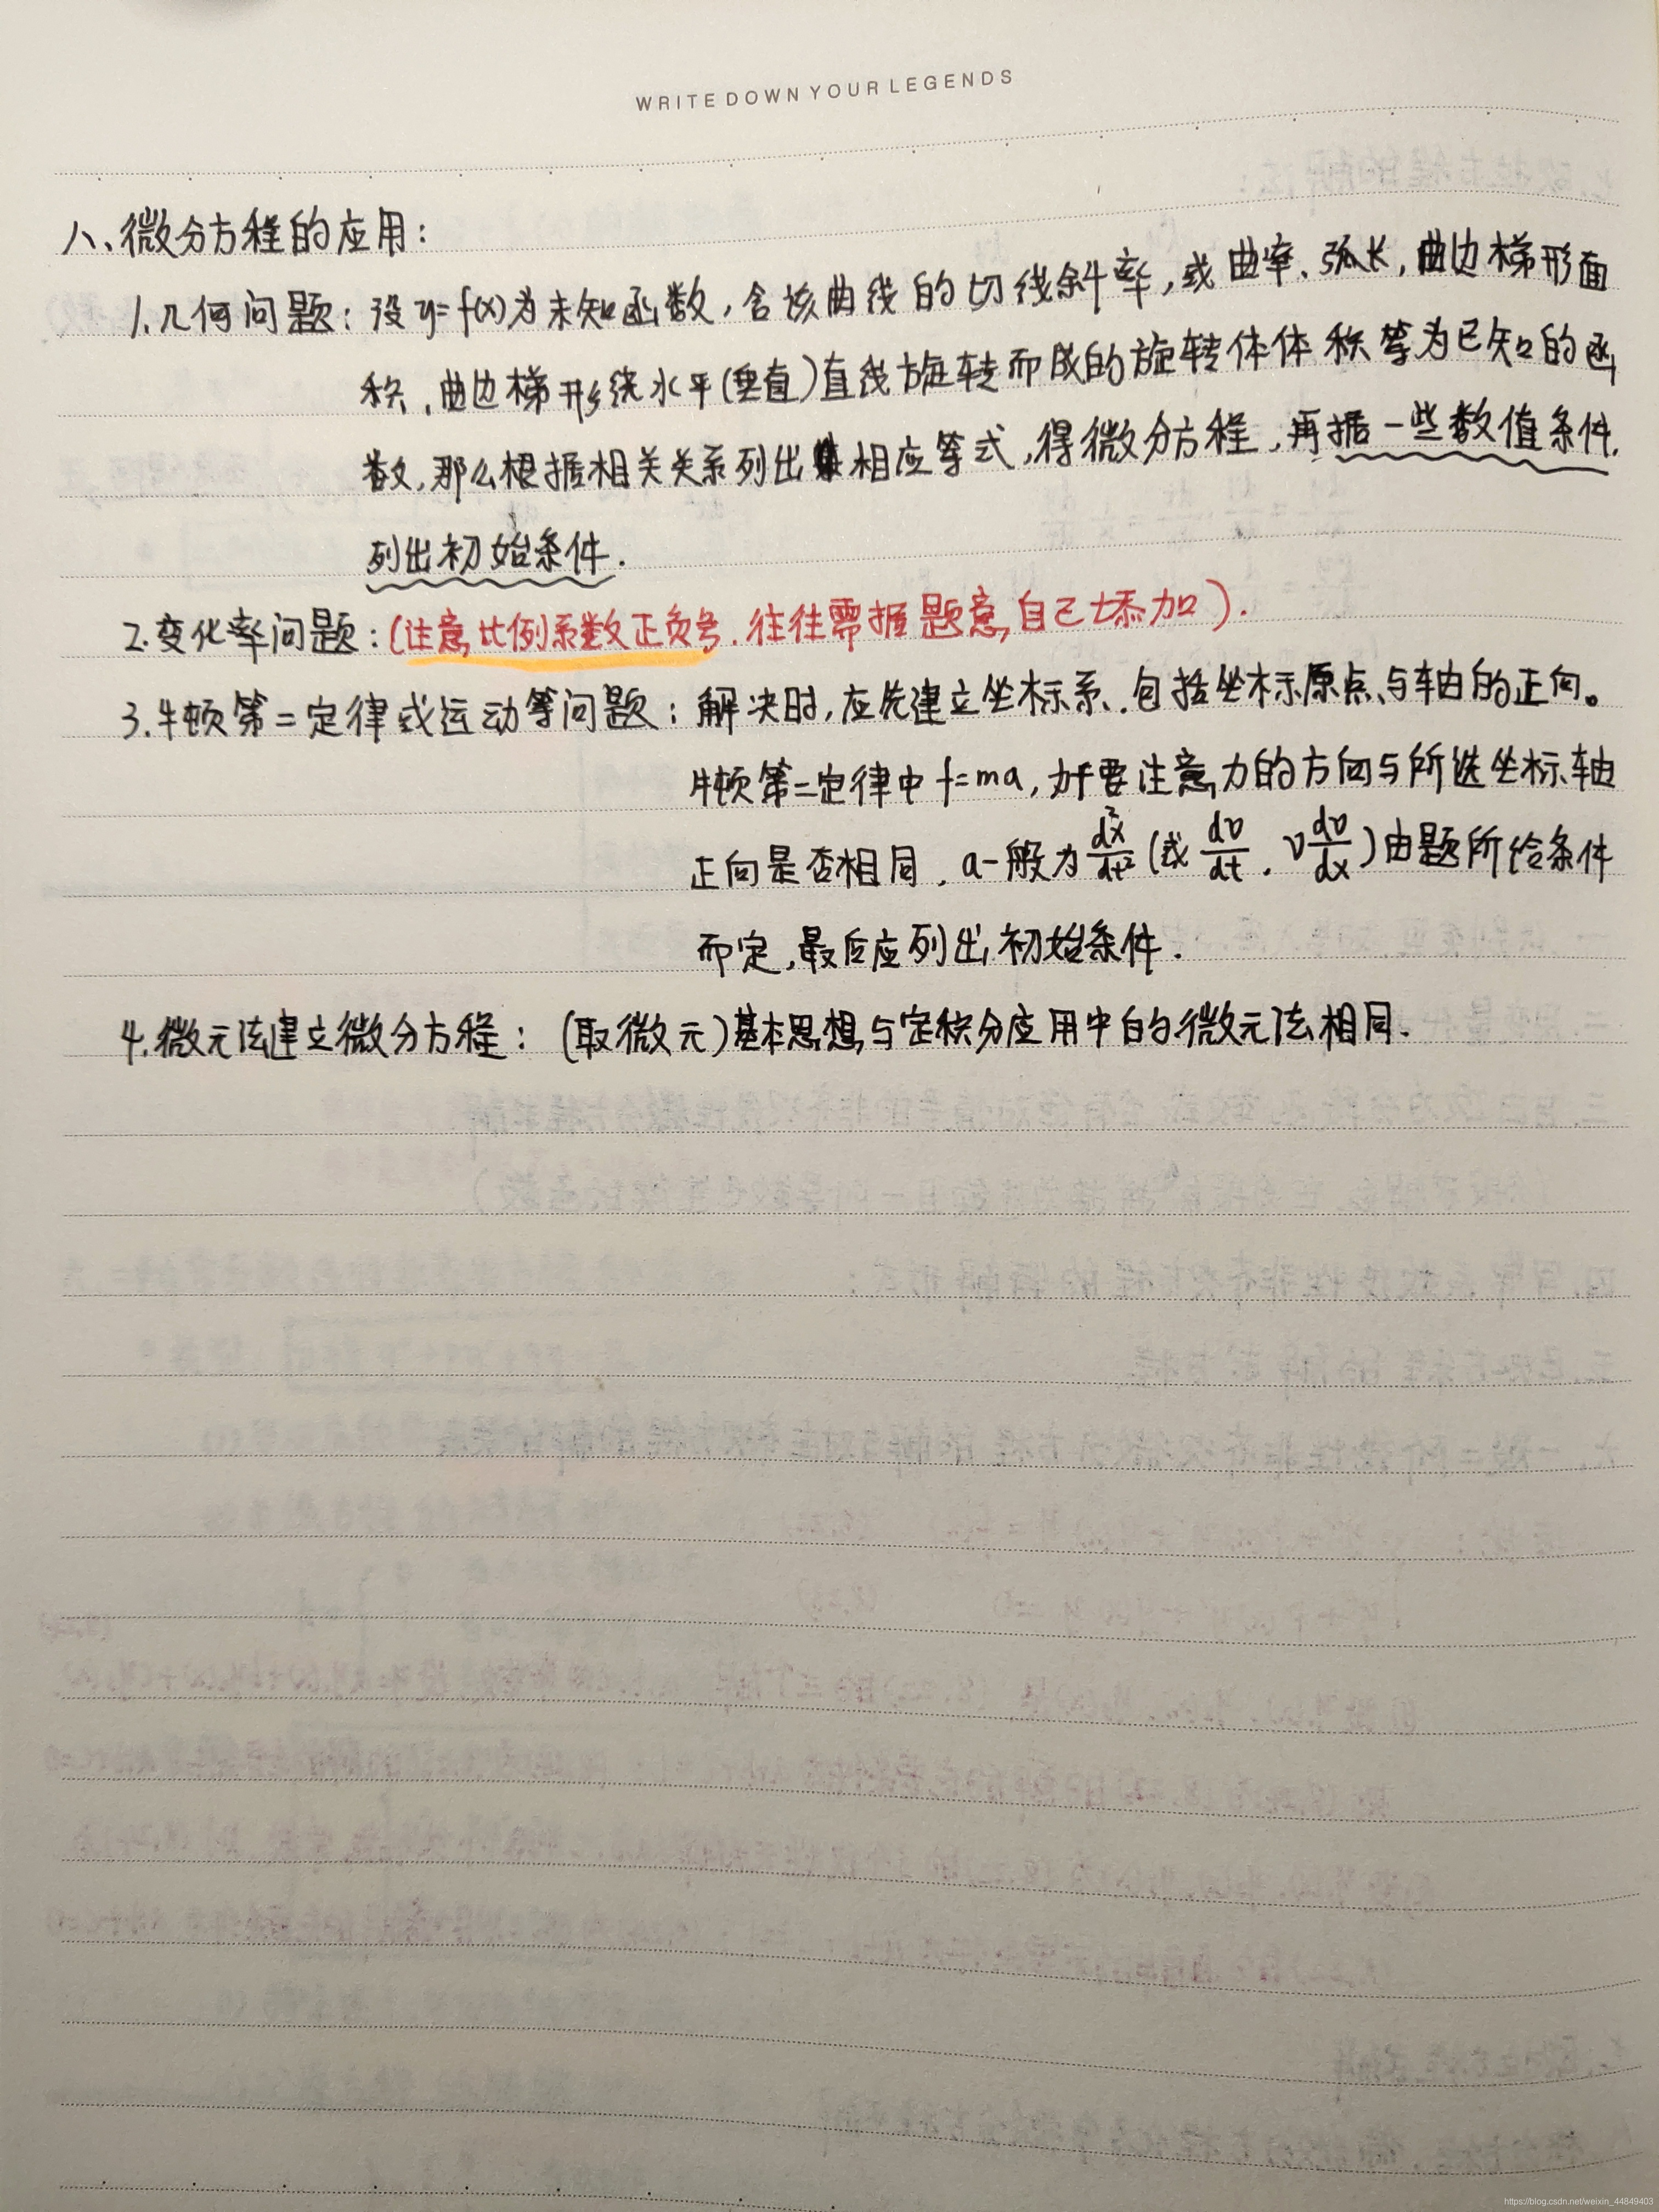 WRITE DOWN YOUR LEGENDS
八、微分方程的应用：
1.几何问题：设y=f(x)为未知函数，含该曲线的切线斜率，或曲率、弧长，曲边梯形面
积、曲边梯形绕水平(垂直)直线旋转而成的旋转体体积等为已知的函
数，那么根据相关关系列出相应等式，得微分方程，再据一些数值条件，
列出初始条件．
2.变化率问题：(注意比例系数正负号．往往需据题意，自己添加)．
3.牛顿第二定律或运动等问题：解决时，应先建立坐标系．包括坐标原点与轴的正向。
牛顿第二定律中f=ma，要注意力的方向与所选坐标轴
正向是否相同．a一般为d²x/dt²(或dv/dt．vdv/dx)由题所给条件
而定，最后应列出初始条件．
4.微元法建立微分方程：(取微元)基本思想与定积分应用中的微元法相同．
https://blog.csdn.net/weixin_44849403